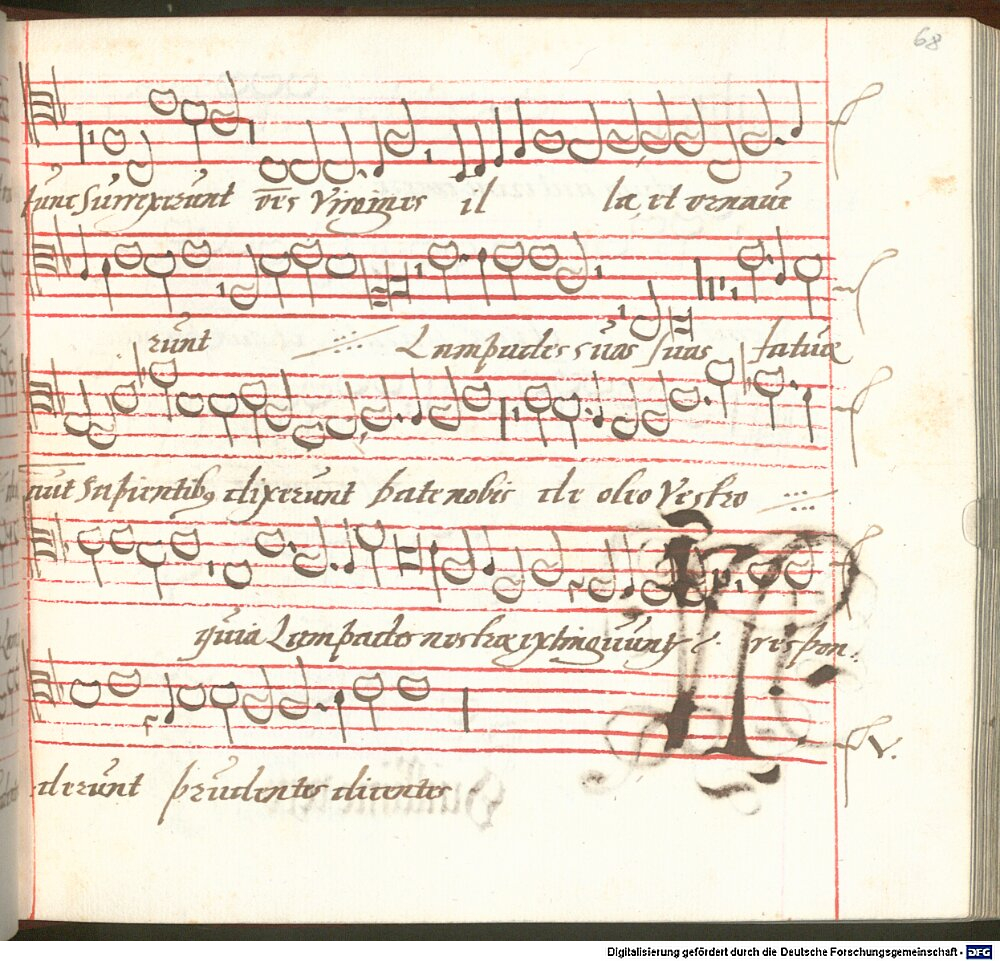 68
tunc Surrexerunt oēs Virgines il la, et ornaue
runt Lampades suas suas fatuæ
aut Sapientibꝫ dixerunt Date nobis de oleo Vestro
quia Lampades nostræ extinguunt respon:
derunt prudentes dicentes
V.
Digitalisierung gefördert durch die Deutsche Forschungsgemeinschaft - DFG